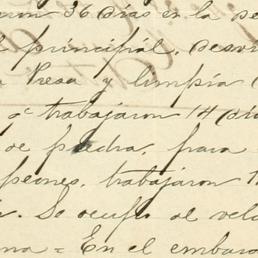 eron 36 dias en la se
l principal, desvi
a Presa y limpia
qe trabajaron 14 di
de piedra, para
peones, trabajaron 1
Se ocupó al vela
na = En el embarc